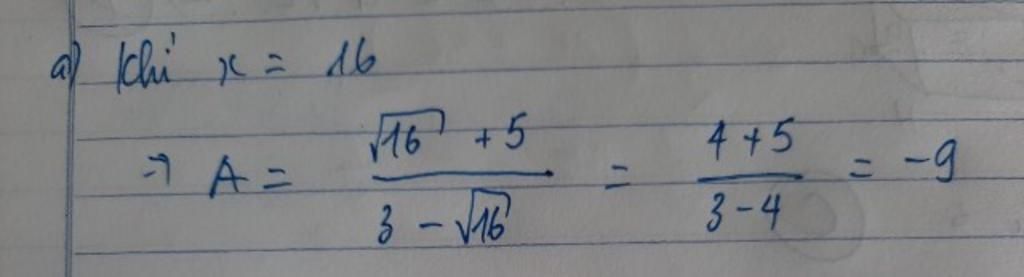 a) Khi x = 16
→ A = \frac{\sqrt{16} + 5}{3 - \sqrt{16}} = \frac{4 + 5}{3 - 4} = -9